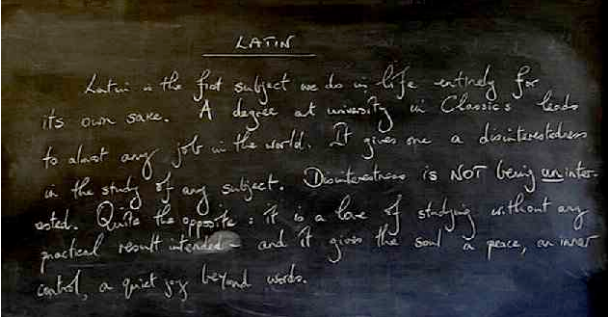 LATIN
Latin is the first subject we do in life entirely for
its own sake. A degree at university in Classics leads
to almost any job in the world. It gives one a disinterestedness
in the study of any subject. Disinterestness is NOT being uninter-
ested. Quite the opposite: it is a love of studying without any
practical result intended – and it gives the soul a peace, an inner
control, a quiet joy beyond words.